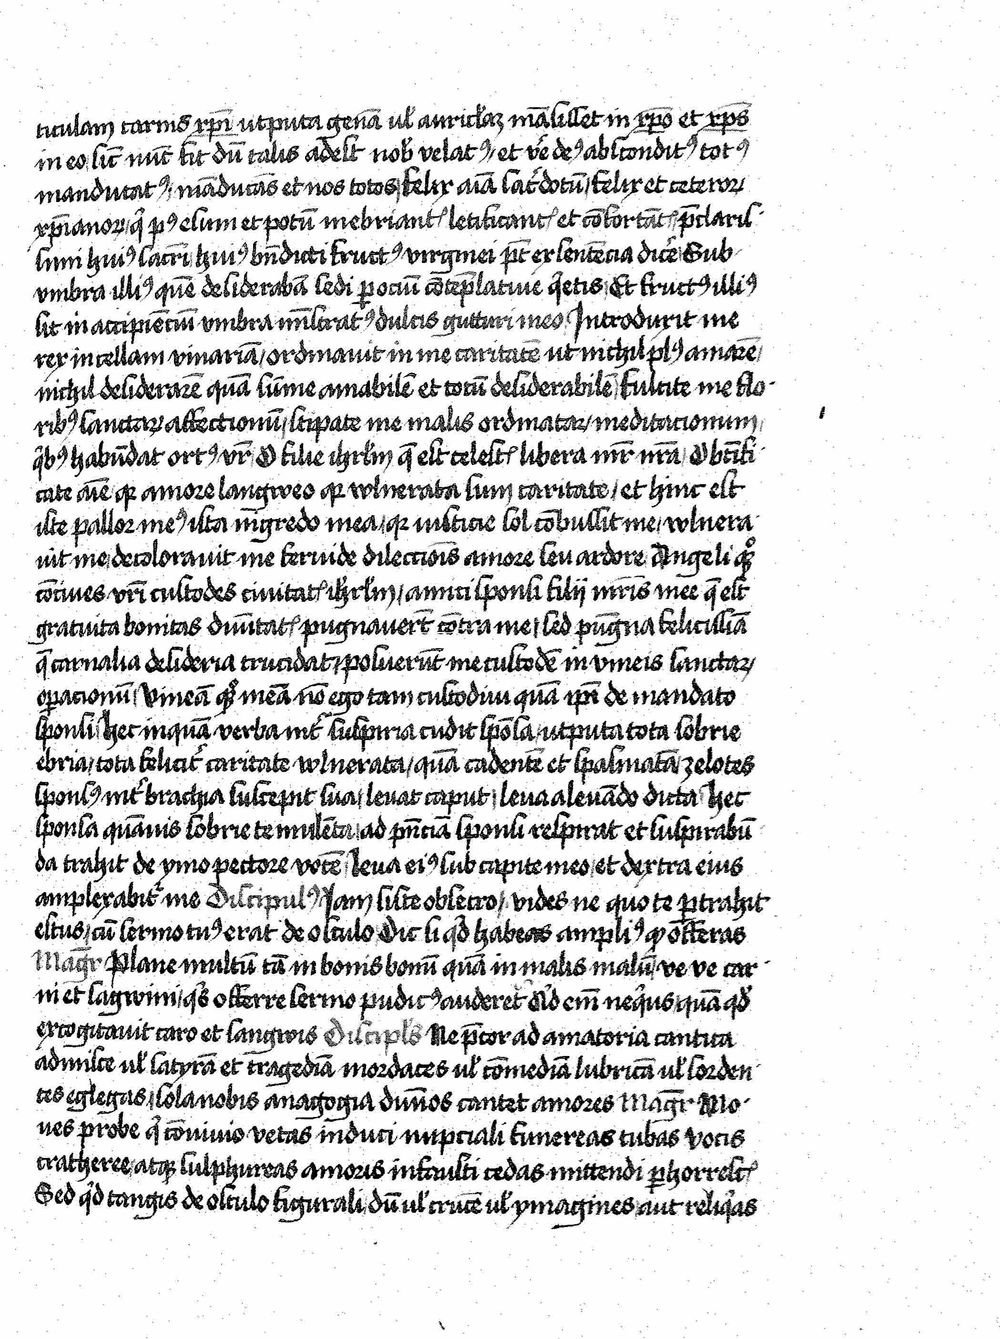 ticulam carnis xp̄i utputa genā ul' auric̄laꝫ māsisset in xp̄o et xp̄s
in eo, sic̄ nūc fit dū talis adest nob̄ velatꝰ, et ve᷑ deꝰ absconditꝰ totꝰ
manducatꝰ, māducās et nos totos, felix aīa sac̄dotū, felix et ceteroꝝ
xp̄ianoꝝ, q̄ pꝰ esum et potū inebriant᷑ letificant᷑ et cōfortāt᷑ p̄claris-
simi huiꝰ sac̄ri, huiꝰ bn̄dicti fructꝰ virginei p̄t ex sentēcia dic̄e Sub
vmbra illiꝰ quē desiderabā sedi ꝑ ociū cōtēplatiue q̄etis, Et fructꝰ illiꝰ
sit in accipiēciū vmbra mīstratꝰ dulcis gutturi meo, Introduxit me
rex in cellam vinariā, ordinauit in me caritatē ut nichil plꝰ amarē,
nichil desiderarē quā sūme amabilē et totū desiderabilē, fulcite me flo-
ribꝰ sanctaꝝ affectionū, stipate me malis ordinataꝝ meditacionum,
q̄bꝰ habūdat ortꝰ vr̄ O filie ihrl'm q̄ est celest᷑ libera mr̄ nr̄a, Obtīfi-
cate aīe qꝛ amore langweo qꝛ wlnerata sum caritate, et hinc est
iste pallor meꝰ ista nīgredo mea, qꝛ iusticie sol cōbussit me, wlnera-
uit me, decolorauit me feruide dilectiōis amore seu ardore Angeli qꝫ
cōciues vr̄i custodes ciuitat᷑ ihrl'm, amici sponsi filij mr̄is mee q̄ est
gratuita bonitas diuīitat᷑ pugnauerūt cōtra me, sed pugna felicissiā
q̄ carnalia desideria trucidat, posuerūt me custodē in vineis sanctaꝝ
oꝑacionū, Vineā qꝫ meā nō ego tam custodiui quā ip̄i de mandato
sponsi, hec inquā verba int᷑ suspiria cudit spōsa, utputa tota sobrie
ebria, tota felicit᷑ caritate wlnerata, quā cadentē et spasmatā zelotes
sponsꝰ int᷑ brachia suscepit sua, leuat caput, leua a leuādo dicta hec
sponsa quāuis sobrie temulēta, ad pn̄ciā sponsi respirat et suspirabū-
da trahit de ymo pectore vocē, leua eiꝰ sub capite meo, et dextra eius
amplexabit᷑ me Discipulꝰ Iam siste obsecro, vides ne quo te ꝑtrahit
estus, cū sermo tuꝰ erat de osculo, Dic si qd̄ habeas ampliꝰ qꝫ offeras
Magr̄ Plane multū tā in bonis bonū quā in malis malū, ve ve car-
ni et sagwini, qꝫ offerre sermo pudicꝰ auderet Qd̄ em̄ neq̄us quā qd̄
excogitauit caro et sangwis Discipl's Ne p̄cor ad amatoria cantica
admisce ul' satyrā et tragediā mordaces ul' cōmediā lubricā ul' sorden-
tes eglegas, sola nobis anagogia diuīos cantet amores Magr̄ Mo-
ues probe q̄ cōuiuio vetas induci nupciali funereas tubas vocis
tratheree, atqꝫ sulphureas amoris infausti cedas mittendi ꝑhorresc᷑
Sed qd̄ tangis de osculo figurali, dū ul' crucē ul' ymagines, aut reliq̄as